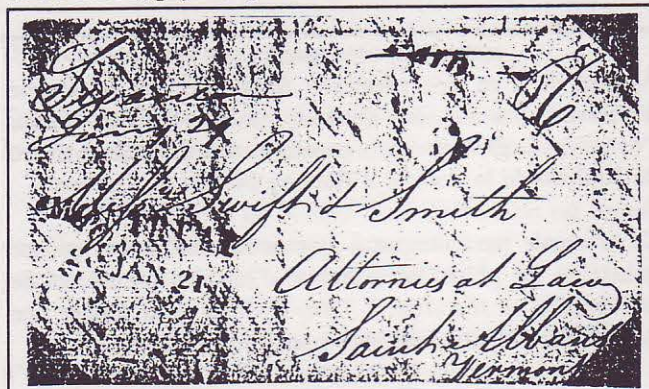 PAID
Jany 24
Messrs Swift & Smith
JAN 21
Attornies at Law
Saint Albans
Vermont